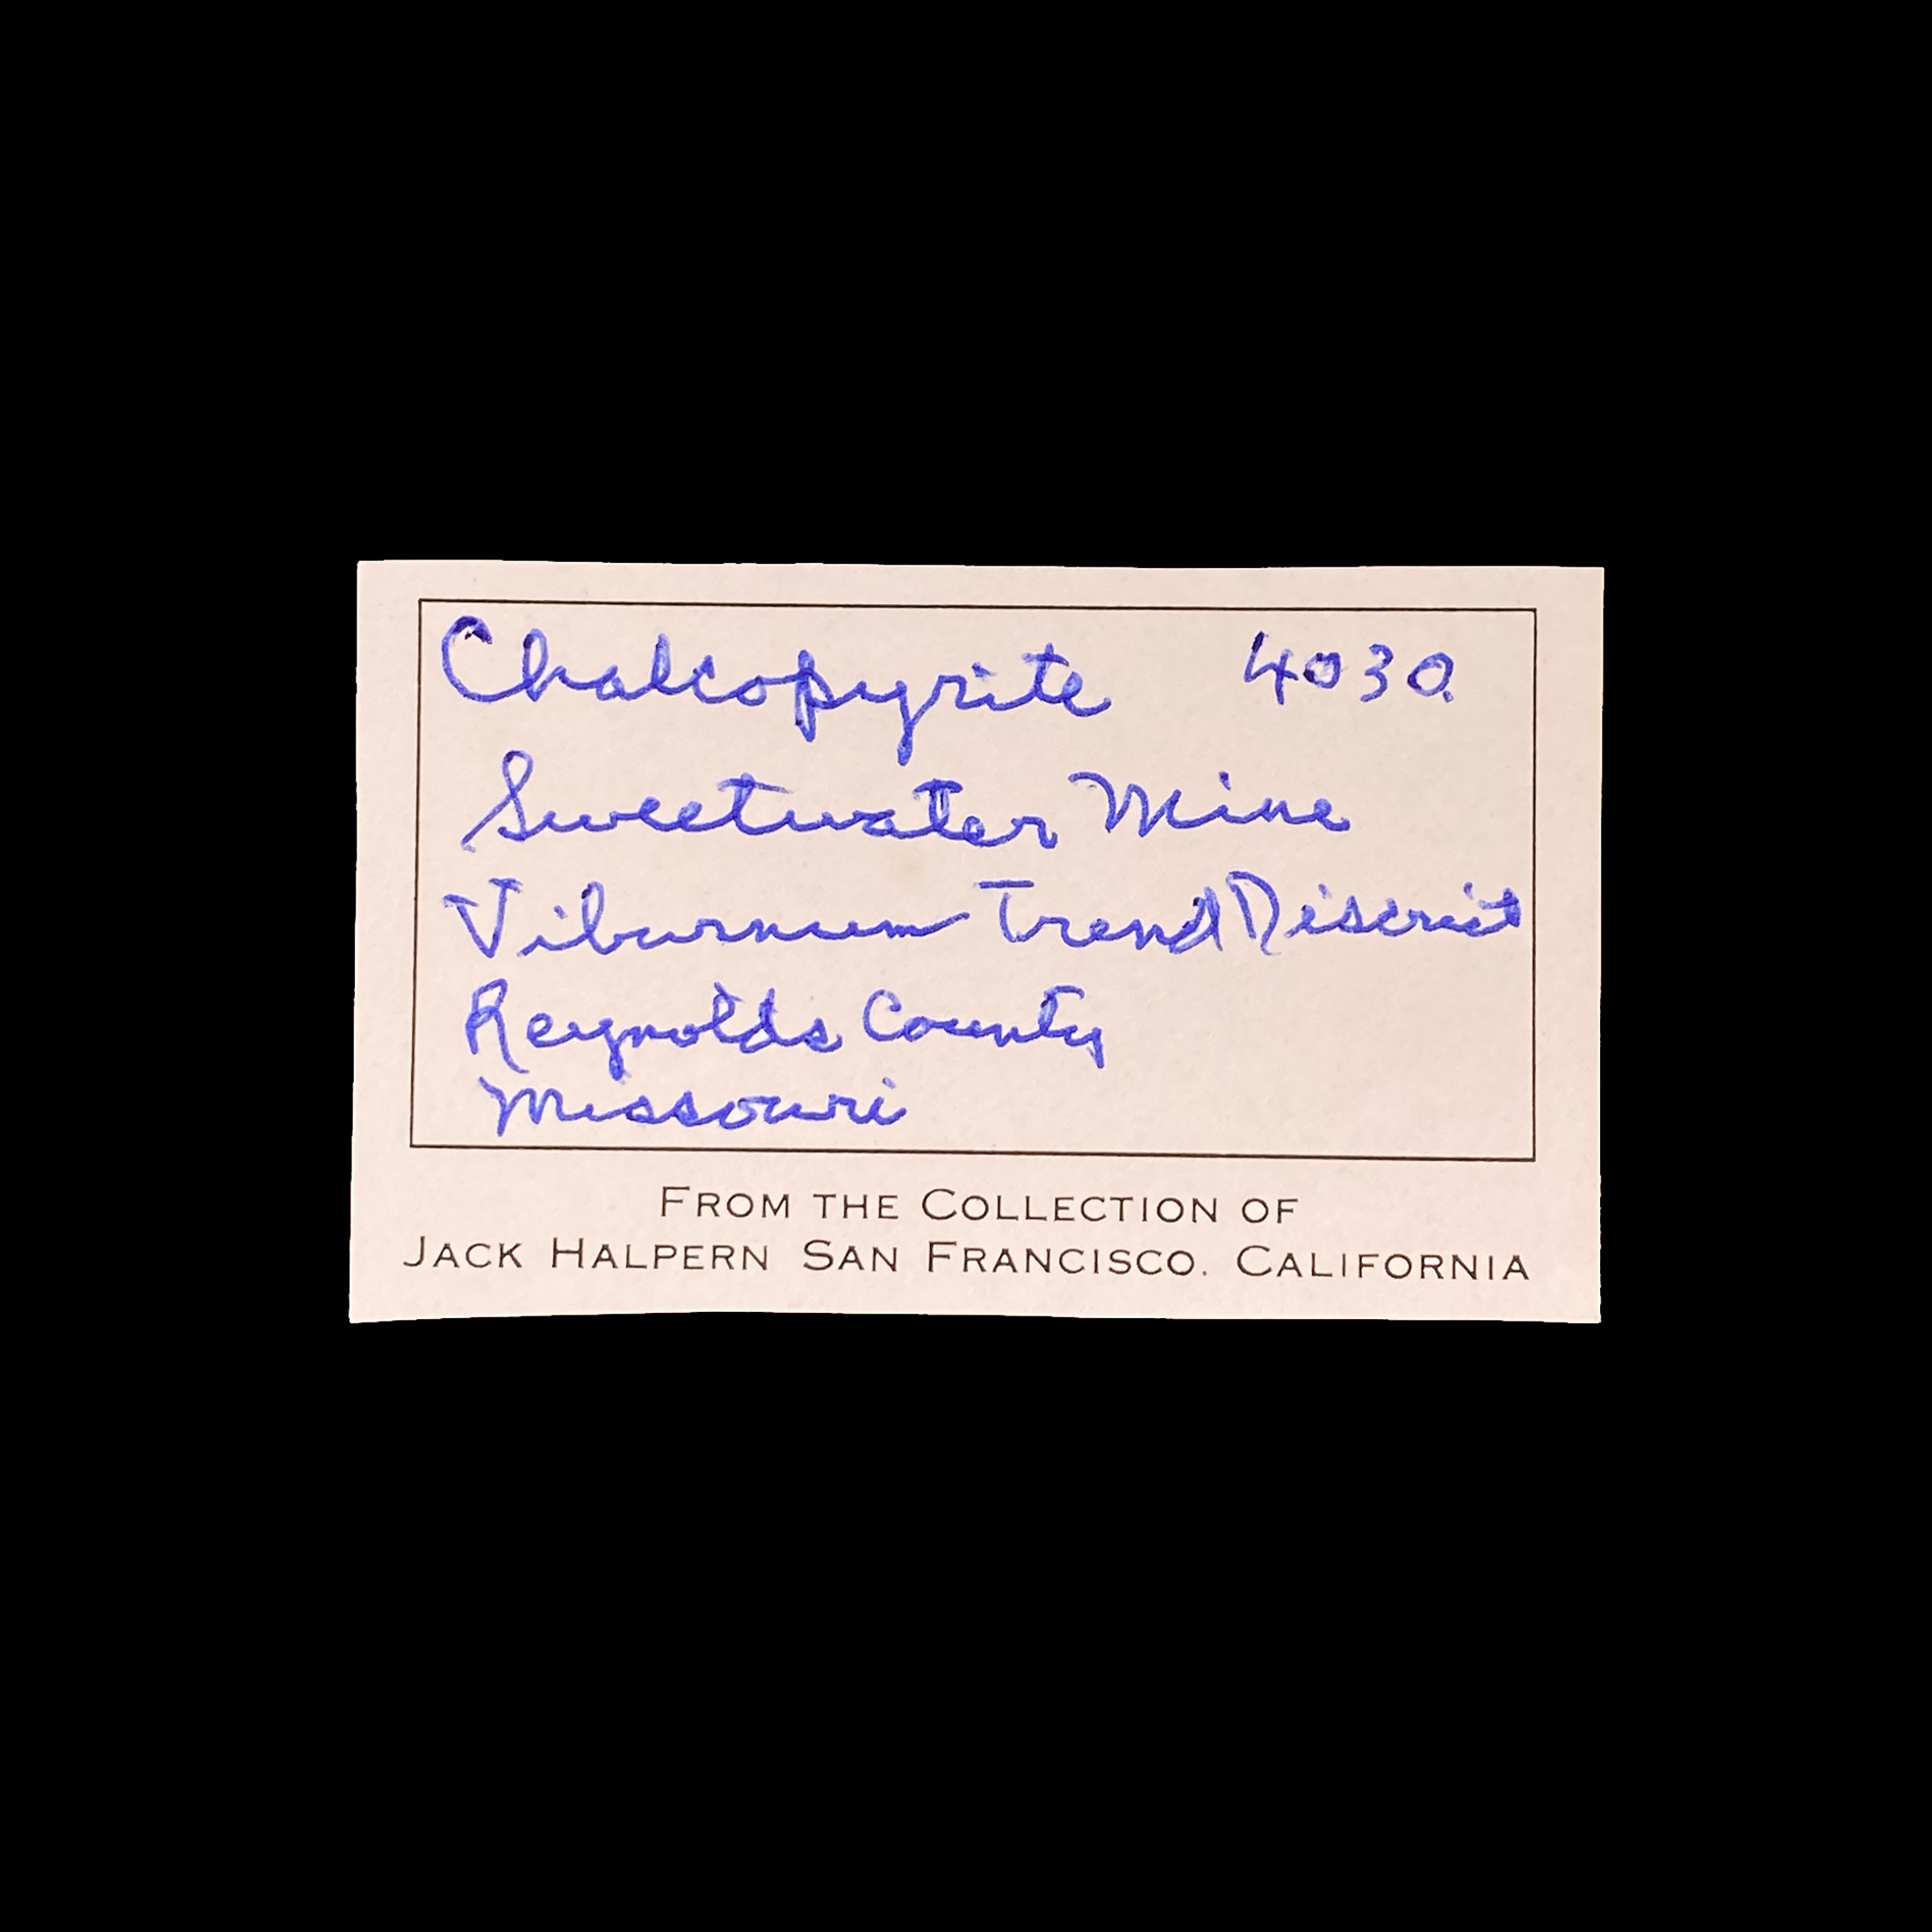 Chalcopyrite 4030
Sweetwater Mine
Viburnum Trend Discrict
Reynolds County
Missouri
FROM THE COLLECTION OF
JACK HALPERN SAN FRANCISCO. CALIFORNIA